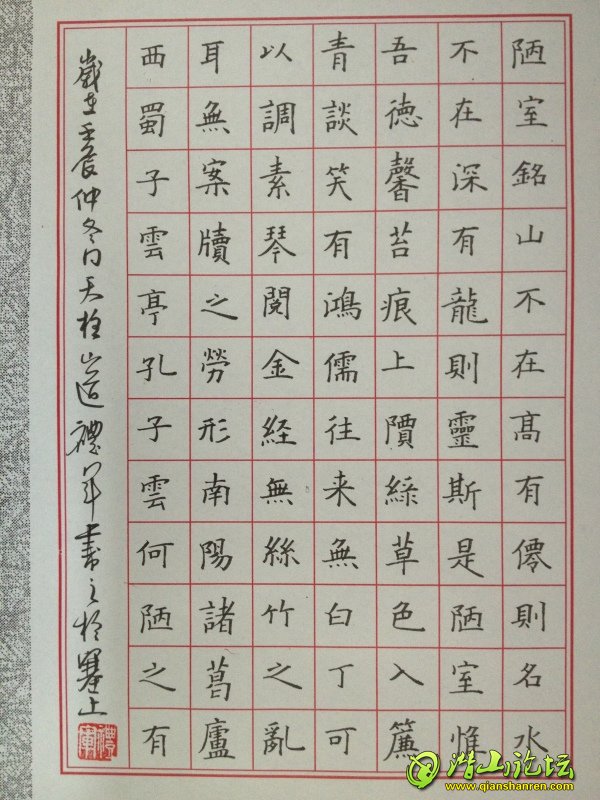 陋室銘山不在髙有僊則名水
不在深有龍則靈斯是陋室惟
吾徳馨苔痕上隫緑草色入簾
青談笑有鴻儒往来無白丁可
以調素琴閱金経無絲竹之亂
耳無案牘之勞形南陽諸葛廬
西蜀子雲亭孔子雲何陋之有
歲在壬辰仲冬天柱山禮军書之於上
禮軍
潜山论坛
www.qianshanren.com